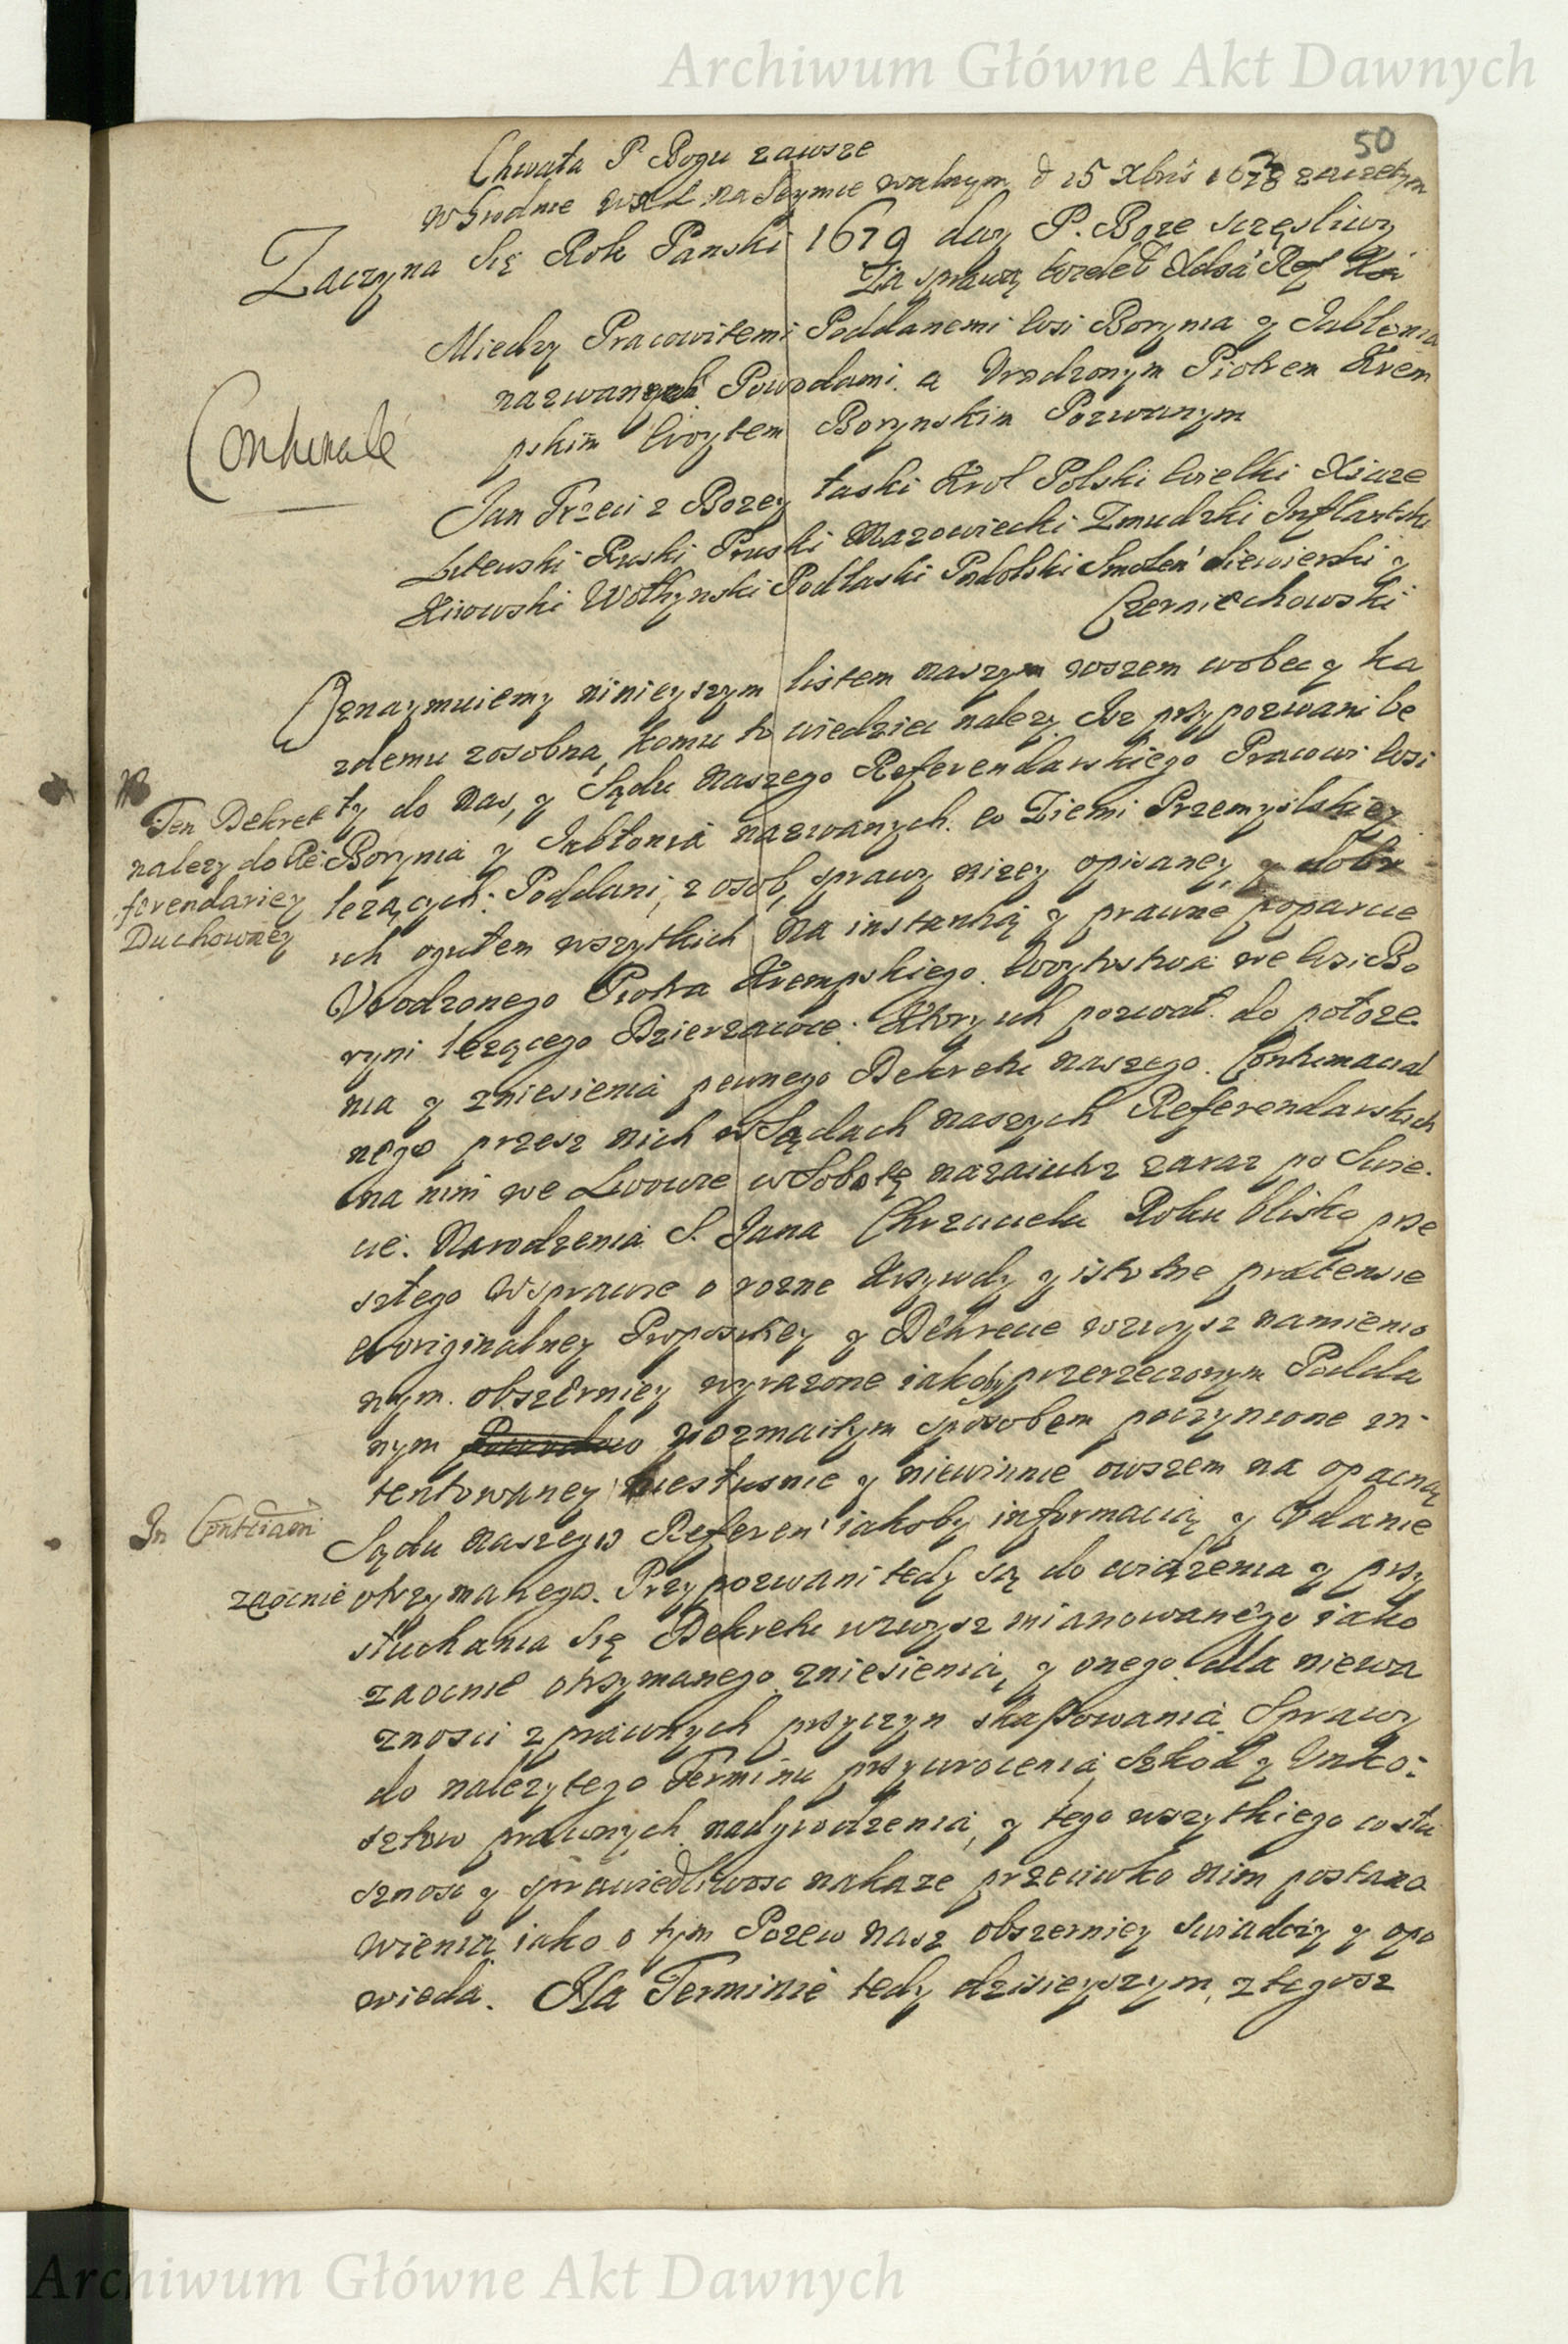 Archiwum Główne Akt Dawnych
50
Chwała P Bogu zawsze
w Grodnie na Seymie walnym d 15 Xbris 1678 zaczętym
Zaczyna się Rok Panski 1679 day P. Boze sczęsliwy
Za sprawą
Miedzy Pracowitemi Poddanemi wsi Borynia y Jabłonia
nazwanych Powodami a Urodzonym Piotrem Krem
pskim Woytem Borynskim Pozwanym
Contumale
Jan Trzeci z Bozey łaski Krol Polski Wielki Xiąze
Litewski Ruski Pruski Mazowiecki Zmudzki Inflantski
Kiiowski Wołhynski Podlaski Podolski Smolen Siewierski y
Czerniechowski
Oznaymuiemy ninieyszym listem naszym wszem wobec y ka
zdemu zosobna, komu to wiedziec nalezy. Isz przypozwani be
ty do nas, y Sądu naszego Referendarskiego Pracowi wsi
Ten Dekret
nalezy do Re
ferendariey
Duchowney
Borynia y Jabłonia nazwanych. w Ziemi Przemyslskiey
lezących: Poddani, z osob, sprawy nizey opisaney, y dobr
ich ogułem wszytkich na instantią y prawne poparcie
Urodzonego Piotra Krempskiego. Woytostwa we wsi Bo
ryni lezącego Dzierzawce: Ktorych pozwał. do połoze
nia y zniesienia pewnego Dekretu naszego. Contumacial
nego przesz nich w Sądach naszych Referendarskich
na nim we Lwowie w Sobotę nazaiutrz zaraz po Swie.
cie. Narodzenia S. Jana Chrzciciela Roku blisko prze
szłego w sprawie o rozne Krzywdy y istotne praetensie
w originalney Propositiey y Dekrecie wzwysz namienio
nym. obszerniey wyrazone iakoby przerzeczonym Podda
nym rozmaitym sposobem poczynione in
tentowaney niesłusznie y niewinnie owszem na opaczną
In Conttiam
Sądu naszego Referen iakoby informacią y Udanie
zaocnie otrzymanego. Przypozwani tedy są do widzenia y przy
słuchania się Dekretu wzwysz mianowanego iako
zaocnie otrzymanego zniesienia, y onego. dla niewa
znosci z prawnych przyczyn skassowania Sprawy
do nalezytego Terminu przywrocenia Szkod y Unko:
sztow prawnych nadgrodzenia, y tego wszytkiego co słu
sznosc y sprawiedliwosc nakaze przeciwko nim postano
wienia iako o tym Pozew nasz obszerniey swiadczy y opo
wieda. Na Terminie tedy dzisieyszym, z tegosz
Archiwum Główne Akt Dawnych